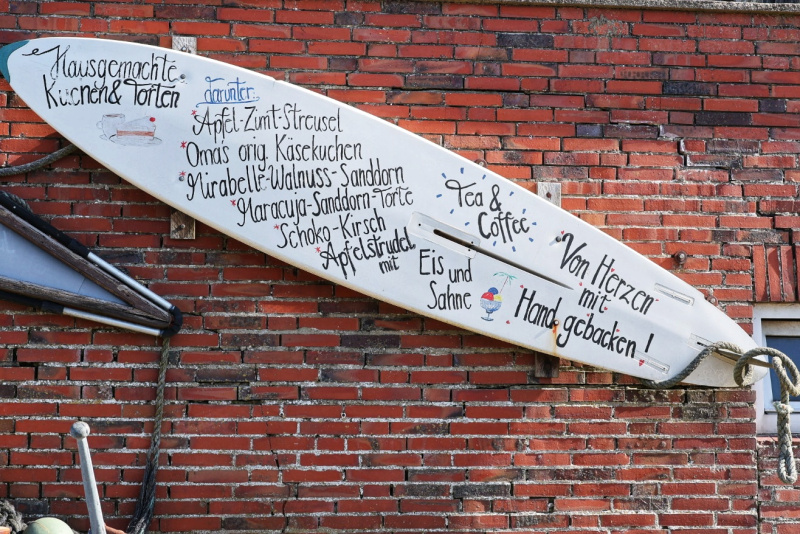 Hausgemachte
Kuchen & Torten
darunter:
Apfel-Zimt-Streusel
Omas orig. Käsekuchen
Mirabelle-Walnuss-Sanddorn
Maracuja-Sanddorn-Torte
Schoko-Kirsch
Apfelstrudel
mit
Eis und
Sahne
Tea &
Coffee
Von Herzen
mit
Hand gebacken!